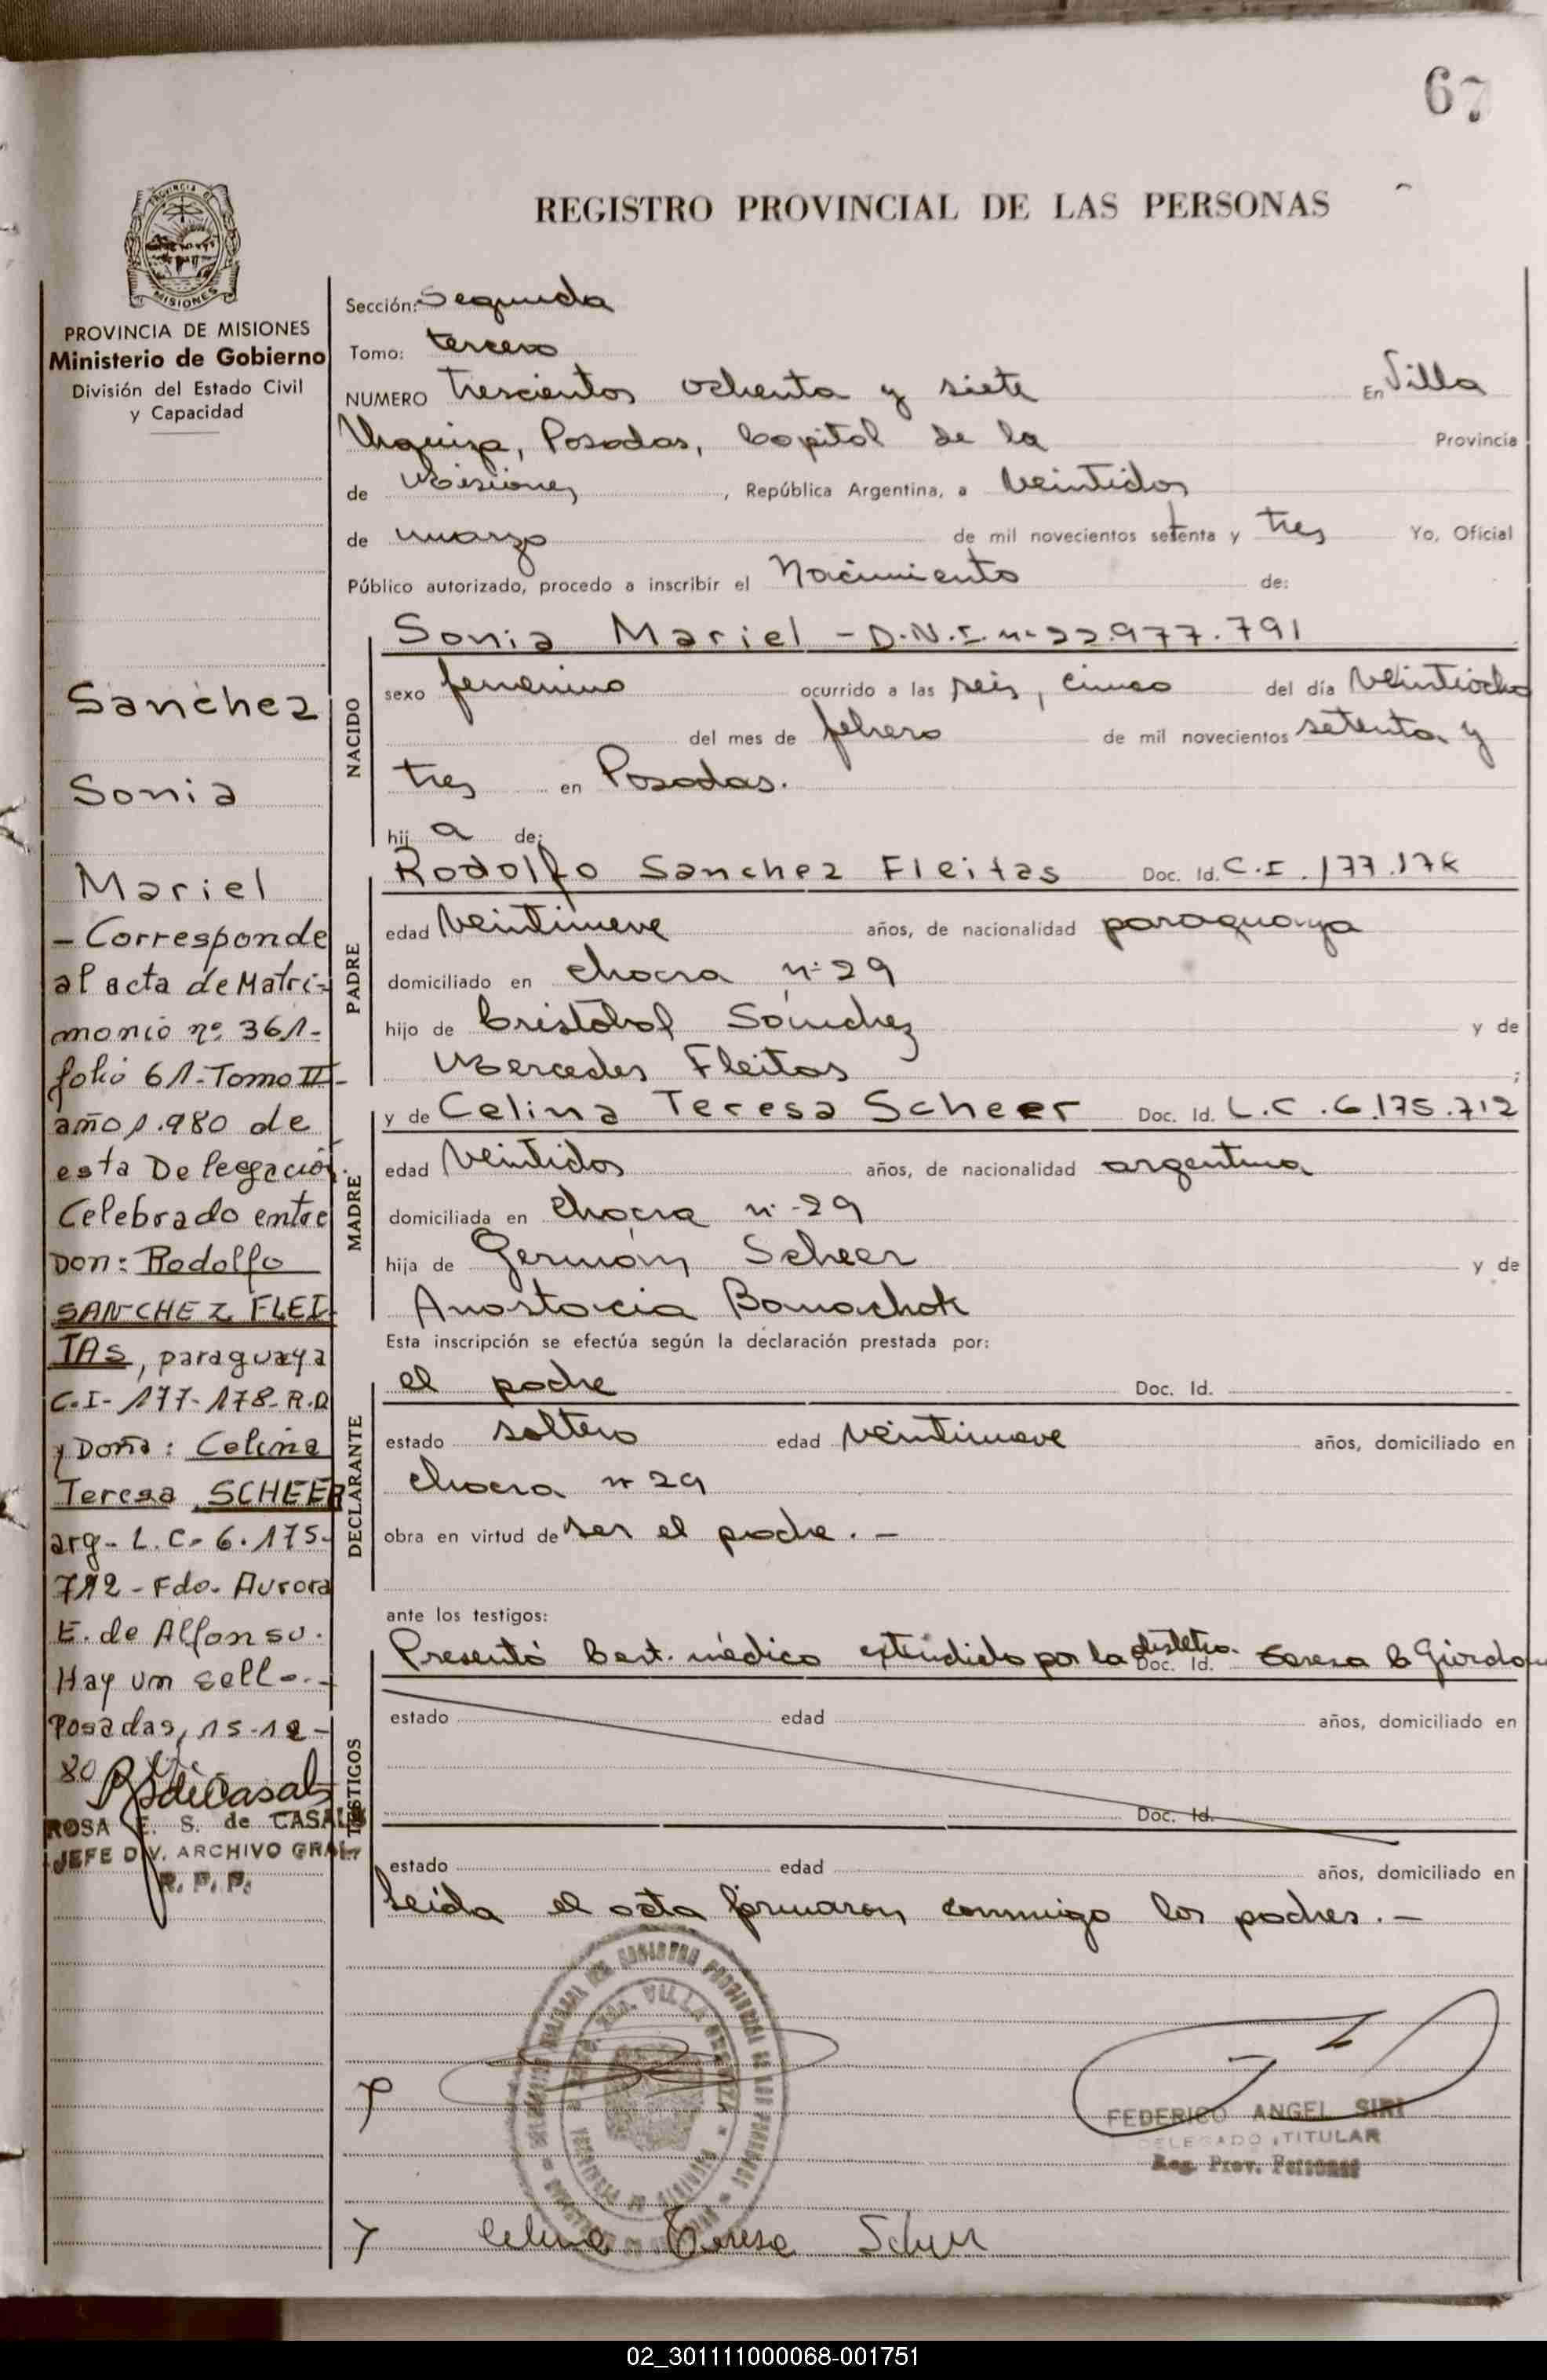 67
REGISTRO PROVINCIAL DE LAS PERSONAS
PROVINCIA DE MISIONES
Ministerio de Gobierno
División del Estado Civil
y Capacidad
Sanchez
Sonia
Mariel
- Corresponde
al acta de Matri-
monio nº 361-
folio 61-Tomo III-
año 1.980 de
esta Delegación.
Celebrado entre
Don: Rodolfo
SANCHEZ FLEI-
TAS, paraguaya
C.I- 177-178-R.P
y Doña: Celina
Teresa SCHEER
arg- L.C. 6.175-
712 - Fdo. Aurora
E. de Alfonso.
Hay un sello.-
Posadas, 15-12-
80
ROSA E. S. de CASALS
JEFE DIV. ARCHIVO GRAL
R. P. P.
Sección: Segunda
Tomo: tercero
NUMERO trescientos ochenta y siete En Villa
Urquiza, Posadas, Capital de la Provincia
de Misiones, República Argentina, a veintidos
de marzo de mil novecientos setenta y tres Yo, Oficial
Público autorizado, procedo a inscribir el Nacimiento de:
NACIDO
Sonia Mariel - D.N.I. nº 22.977.791
sexo femenino ocurrido a las seis, cinco del día veintiocho
del mes de febrero de mil novecientos setenta y
tres en Posadas.
hij a de:
PADRE
Rodolfo Sanchez Fleitas Doc. Id. C.I. 177.178
edad veintinueve años, de nacionalidad paraguaya
domiciliado en chacra nº 29
hijo de Cristóbal Sánchez y de
Mercedes Fleitas ;
MADRE
y de Celina Teresa Scheer Doc. Id. L.C. 6.175.712
edad veintidos años, de nacionalidad argentina
domiciliada en chacra nº 29
hija de Germán Scheer y de
Anastacia Banachok
Esta inscripción se efectúa según la declaración prestada por:
DECLARANTE
el padre Doc. Id.
estado soltero edad veintinueve años, domiciliado en
chacra nº 29
obra en virtud de ser el padre. -
ante los testigos:
TESTIGOS
Presentó Cert. médico extendido por la obstetra. Doc. Id. Teresa C Giordan
estado edad años, domiciliado en
Doc. Id.
estado edad años, domiciliado en
Leida el acta firmaron conmigo los padres. -
FEDERICO ANGEL SIRI
DELEGADO TITULAR
Reg. Prov. Personas
Celina Teresa Scheer
02_301111000068-001751